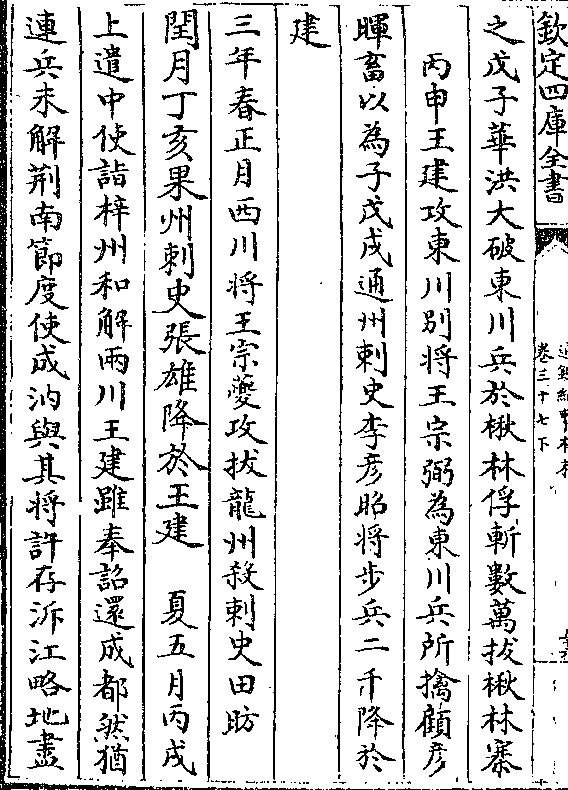 欽定四庫全書
卷三十七下
之戊子華洪大破東川兵於楸林俘斬數萬拔楸林寨
丙申王建攻東川別將王宗弼為東川兵所擒顧彦
暉畜以為子戊戌通州刺史李彦昭将步兵二千降於
建
三年春正月西川将王宗夔攻拔龍州殺刺史田昉
閏月丁亥果州刺史張雄降於王建　夏五月丙戌
上遣中使詣梓州和解兩川王建雖奉詔還成都然猶
連兵未解荆南節度使成汭與其将許存泝江略地盡